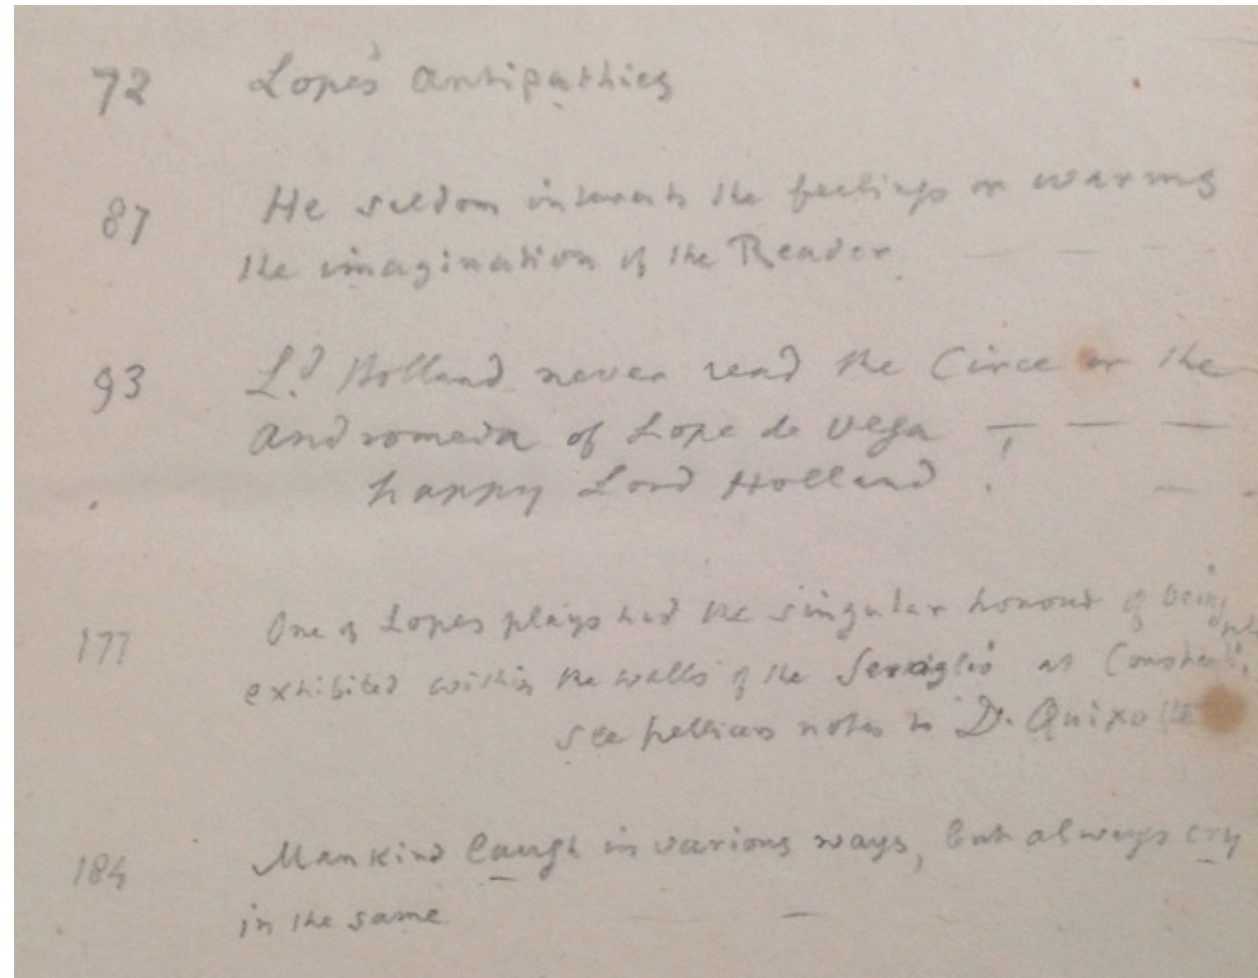 72 Lope's Antipathies
87 He seldom interests the feelings or warms
the imagination of the Reader
93 Ld Holland never read the Circe or the
Andromeda of Lope de Vega — — —
happy Lord Holland ! — —
177 One of Lopes plays had the singular honour of being
exhibited within the walls of the Seraglio at
see pellicers notes to D. Quixotte
184 Mankind laugh in various ways, but always cry
in the same —